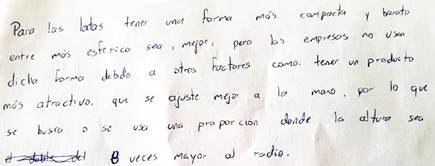 Para las latas tener una forma más compacta y barato
entre más esferica sea, mejor, pero las empresas no usan
dicha forma debido a otros factores como: tener un producto
más atractivo, que se ajuste mejor a la mano, por lo que
se busca o se usa una proporción donde la altura sea
8 veces mayor al radio.